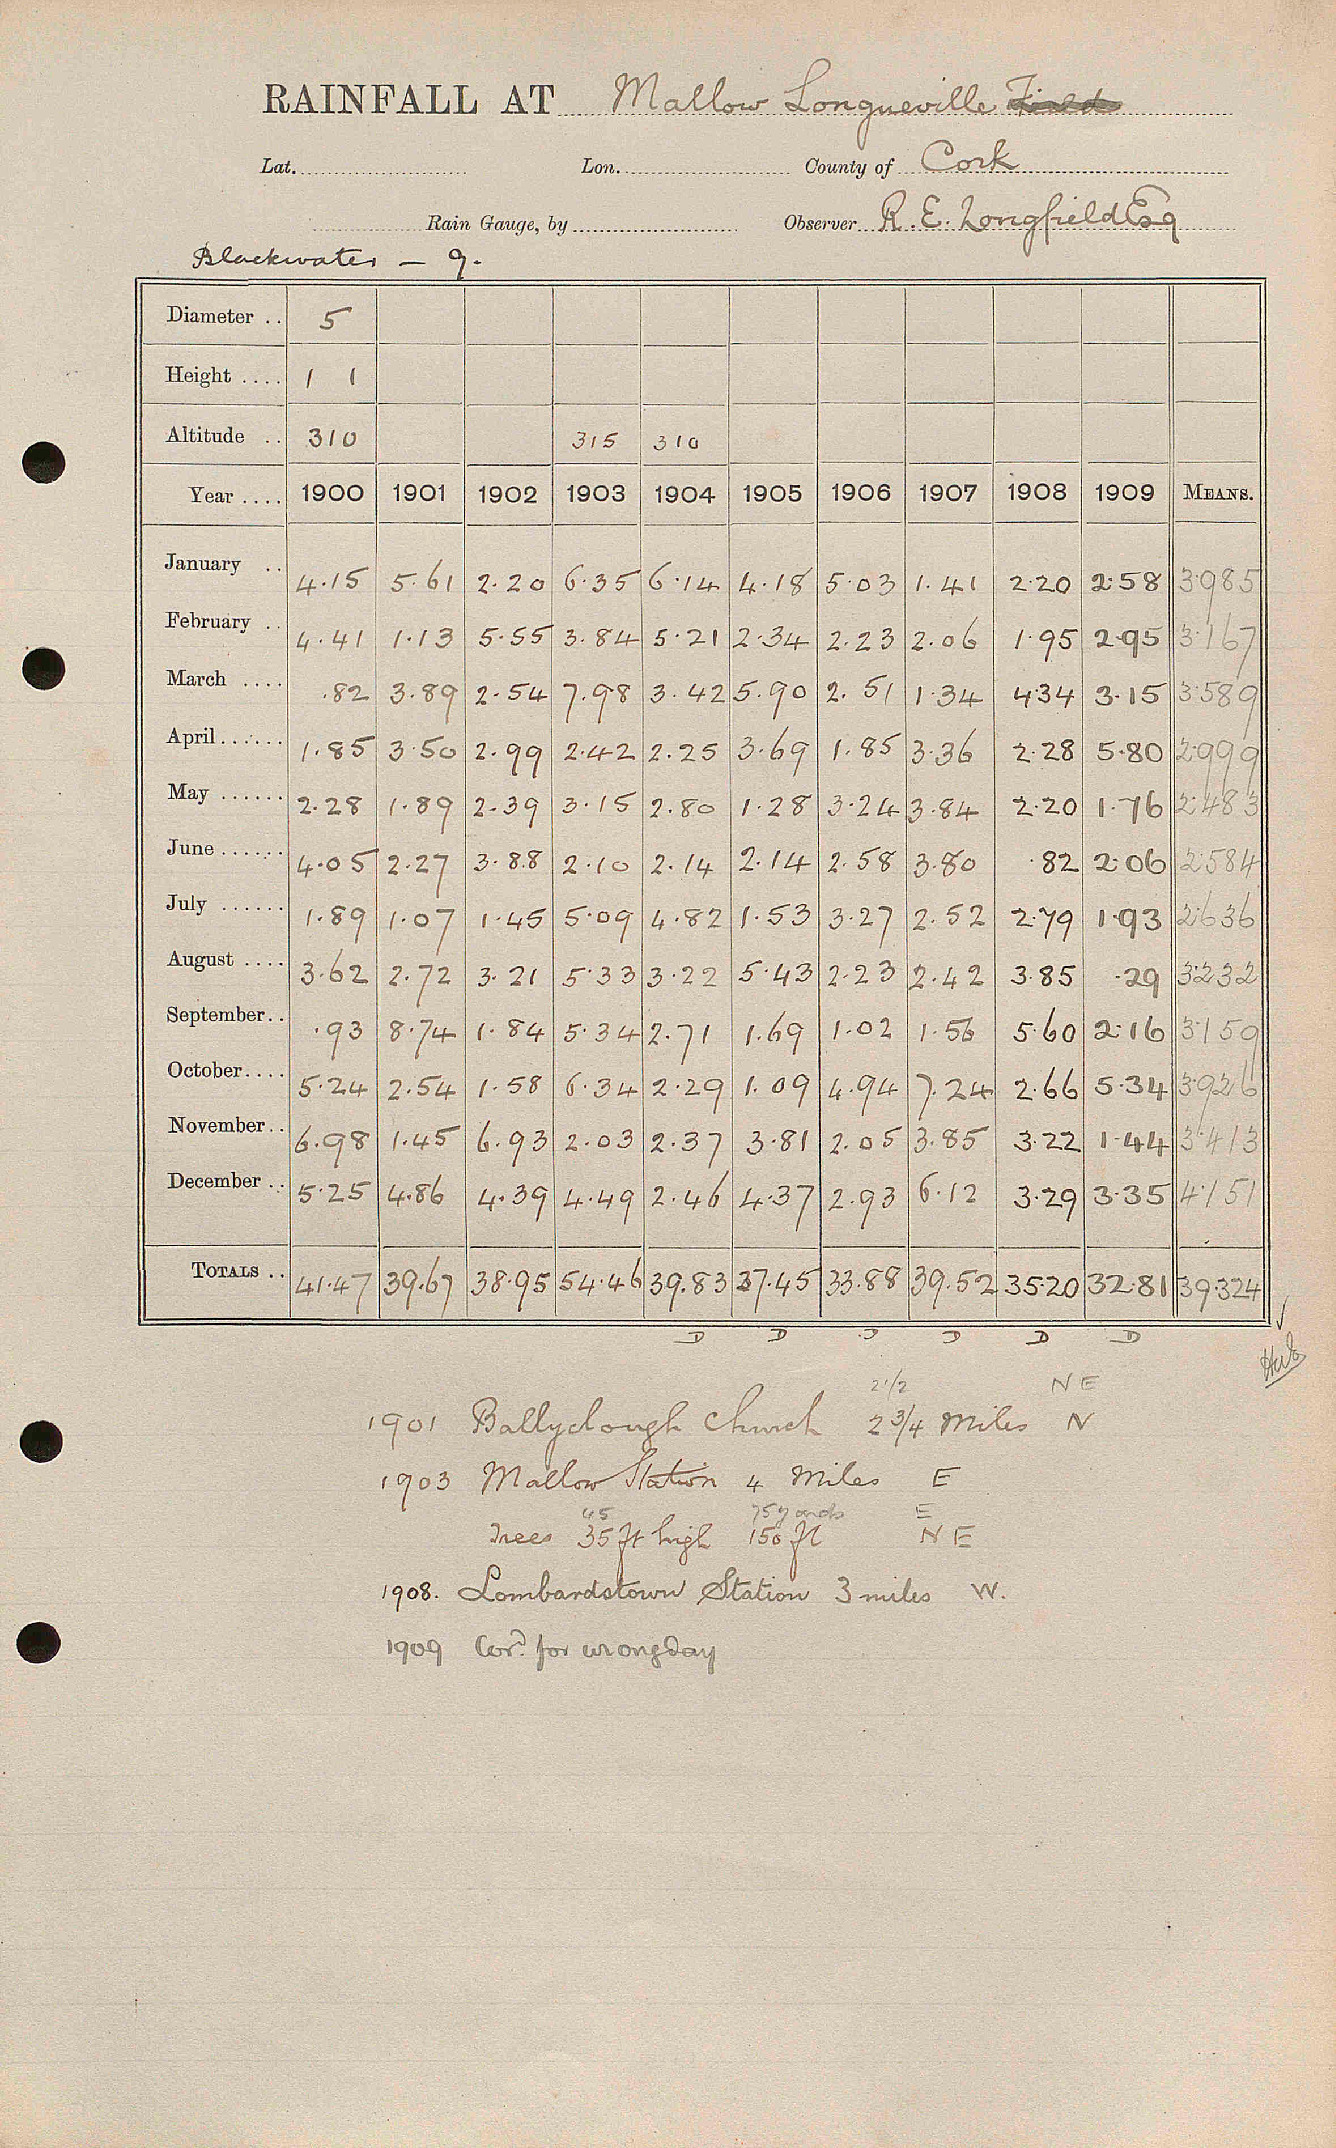 RAINFALL AT Mallow Longueville Field
Lat. Lon. County of Cork
Rain Gauge, by Observer R. E. Longfield Esq
Blackwater — 9.
Diameter .. 5
Height .... 1 1
Altitude .. 310 315 310
Year .... 1900 1901 1902 1903 1904 1905 1906 1907 1908 1909 MEANS.
January .. 4.15 5.61 2.20 6.35 6.14 4.18 5.03 1.41 2.20 2.58 3.985
February .. 4.41 1.13 5.55 3.84 5.21 2.34 2.23 2.06 1.95 2.95 3.167
March .... .82 3.89 2.54 7.98 3.42 5.90 2.51 1.34 4.34 3.15 3.589
April...... 1.85 3.50 2.99 2.42 2.25 3.69 1.85 3.36 2.28 5.80 2.999
May ...... 2.28 1.89 2.39 3.15 2.80 1.28 3.24 3.84 2.20 1.76 2.483
June ...... 4.05 2.27 3.88 2.10 2.14 2.14 2.58 3.80 .82 2.06 2.584
July ...... 1.89 1.07 1.45 5.09 4.82 1.53 3.27 2.52 2.79 1.93 2.636
August .... 3.62 2.72 3.21 5.33 3.22 5.43 2.23 2.42 3.85 .29 3.232
September.. .93 8.74 1.84 5.34 2.71 1.69 1.02 1.56 5.60 2.16 3.159
October.... 5.24 2.54 1.58 6.34 2.29 1.09 4.94 7.24 2.66 5.34 3.926
November.. 6.98 1.45 6.93 2.03 2.37 3.81 2.05 3.85 3.22 1.44 3.413
December .. 5.25 4.86 4.39 4.49 2.46 4.37 2.93 6.12 3.29 3.35 4.151
TOTALS .. 41.47 39.67 38.95 54.46 39.83 37.45 33.88 39.52 35.20 32.81 39.324
D D D D D D
2 1/2 NE
1901 Ballyclough Church 2 3/4 Miles N
1903 Mallow Station 4 Miles E
45 75 yards E
Trees 35 ft high 150 ft NE
1908. Lombardstown Station 3 miles W.
1909 Cor^d. for wrong day